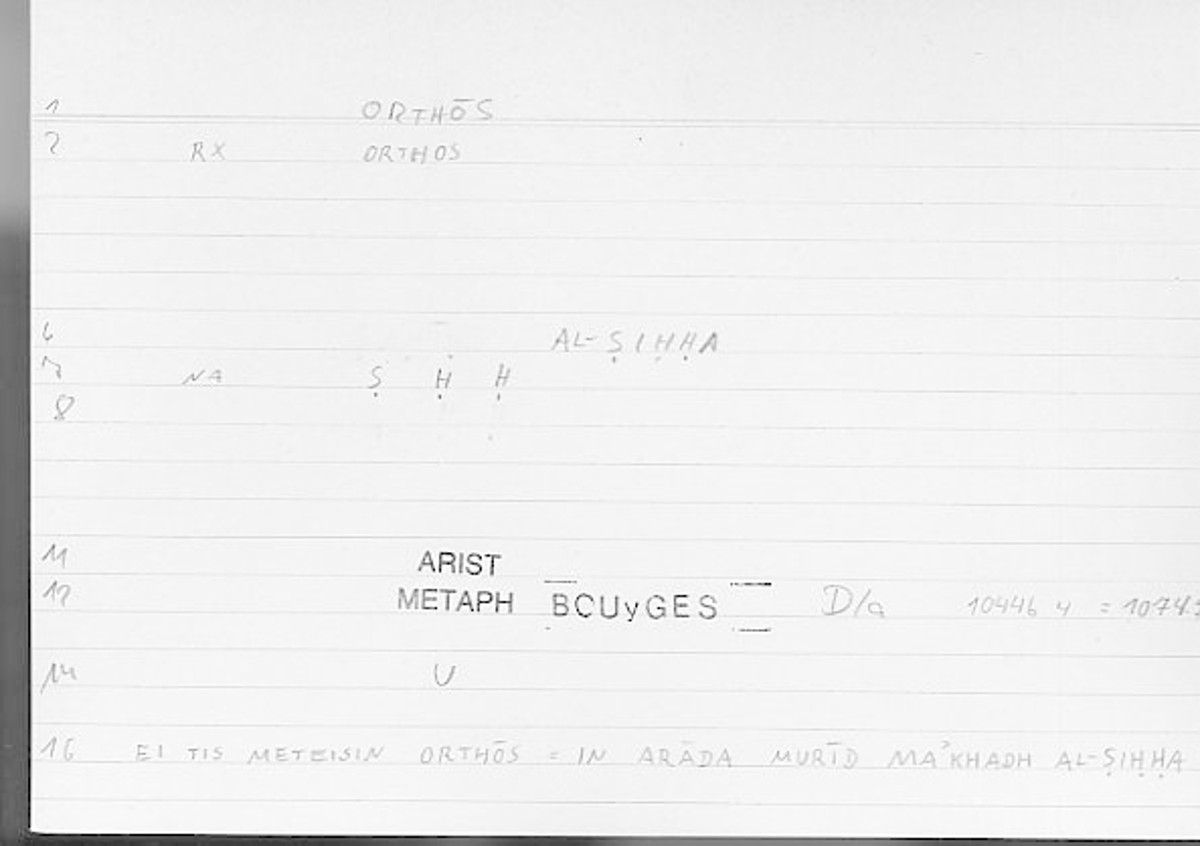 1 ORTHŌS
2 RX ORTHOS
6 AL-ṢIḤḤA
7 NA Ṣ Ḥ Ḥ
8
11 ARIST
12 METAPH BCUyGES D/a 1044b 4 = 1074
14 U
16 EI TIS METEISIN ORTHŌS = IN ARĀDA MURĪD MAʾKHADH AL-ṢIḤḤA